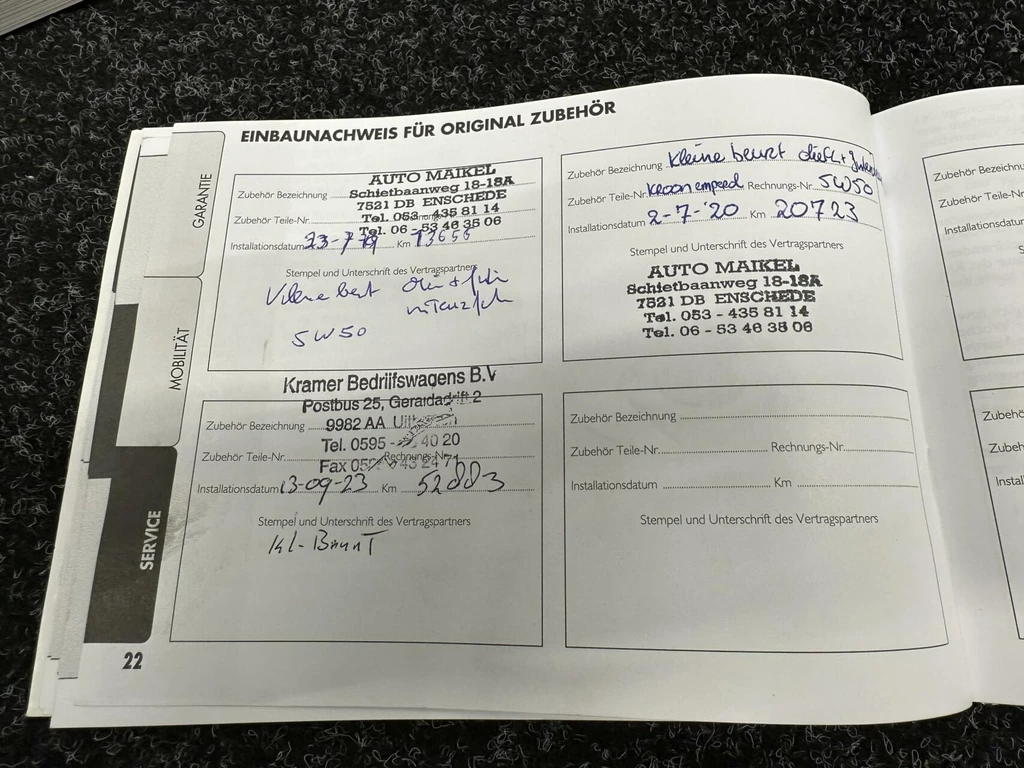 EINBAUNACHWEIS FÜR ORIGINAL ZUBEHÖR
GARANTIE
MOBILITÄT
SERVICE
Zubehör Bezeichnung
AUTO MAIKEL
Schietbaanweg 18-18A
Zubehör Teile-Nr.
7521 DB ENSCHEDE
Tel. 053 - 435 81 14
Tel. 06 - 53 46 35 06
Installationsdatum Km 13656
Stempel und Unterschrift des Vertragspartners
5W50
Zubehör Bezeichnung Kleine beurt
Zubehör Teile-Nr. kroon emperol Rechnungs-Nr. 5W50
Installationsdatum 2-7-'20 Km 20723
Stempel und Unterschrift des Vertragspartners
AUTO MAIKEL
Schietbaanweg 18-18A
7521 DB ENSCHEDE
Tel. 053 - 435 81 14
Tel. 06 - 53 46 35 06
Kramer Bedrijfswagens B.V
Postbus 25, Geraldadrift 2
Zubehör Bezeichnung
9982 AA
Tel. 0595 - 40 20
Zubehör Teile-Nr. Rechnungs-Nr.
Fax
Installationsdatum 13-09-23 Km 52003
Stempel und Unterschrift des Vertragspartners
Kl-Beurt
Zubehör Bezeichnung
Zubehör Teile-Nr. Rechnungs-Nr.
Installationsdatum Km
Stempel und Unterschrift des Vertragspartners
22